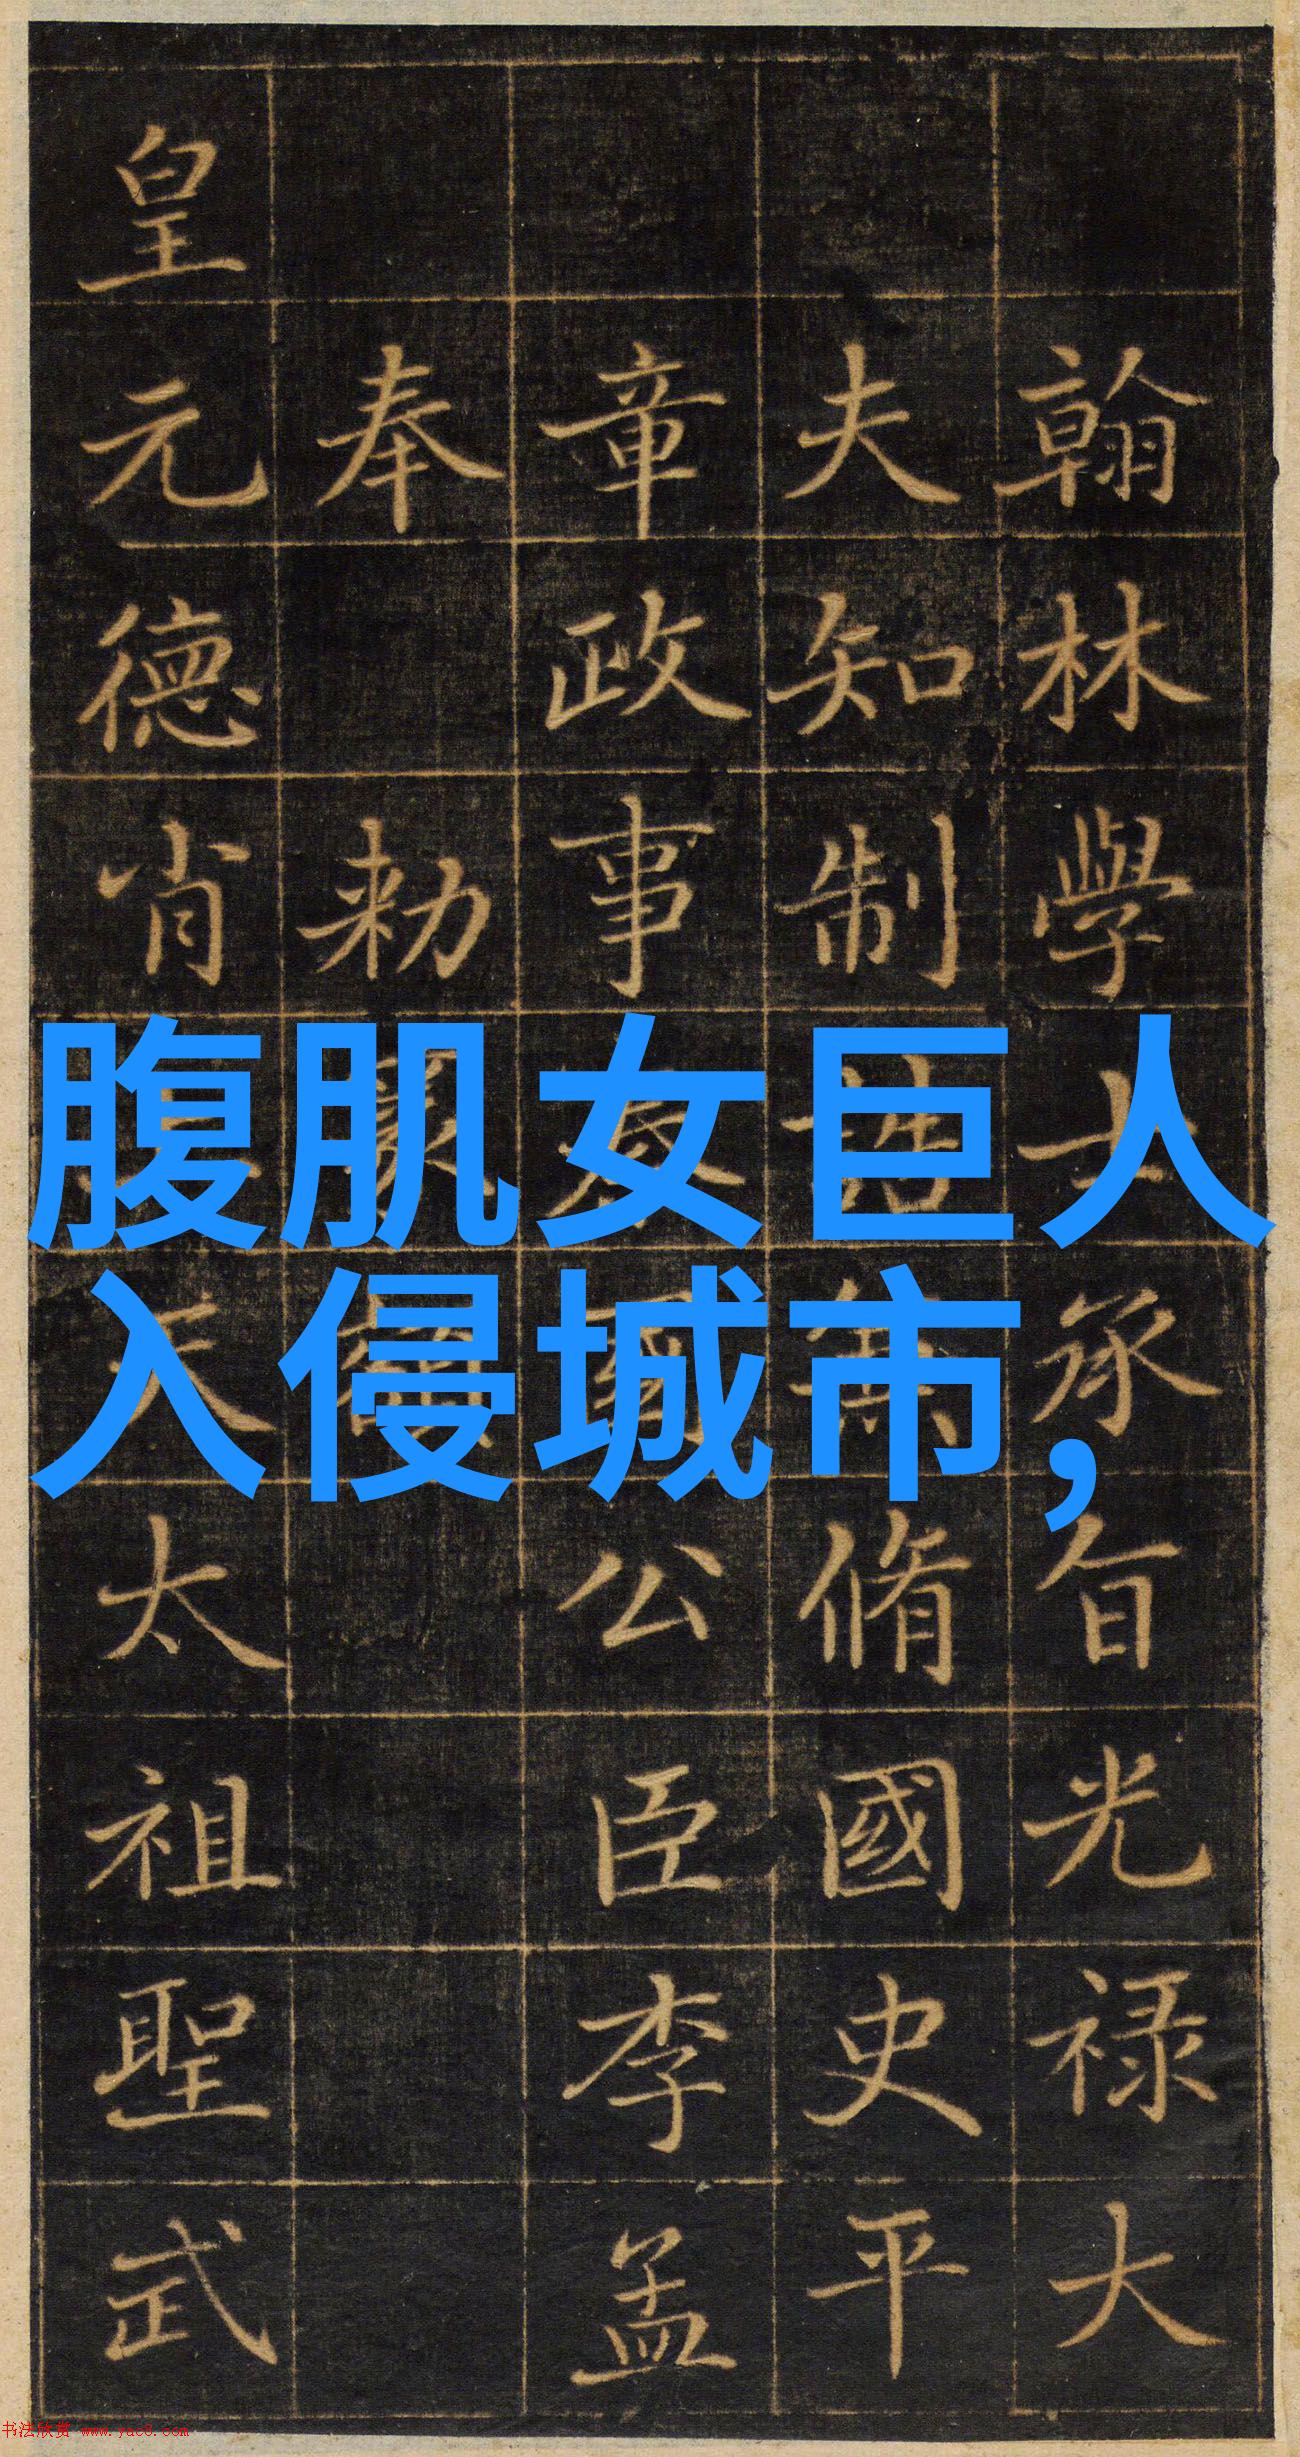 翰林學士承旨光禄大
夫知制誥兼脩國史平
章政事秦國公臣李孟
奉勅篆額
皇元德肖天太祖聖武
腹肌女巨人
入侵城市，
书法欣赏 www.yac8.com